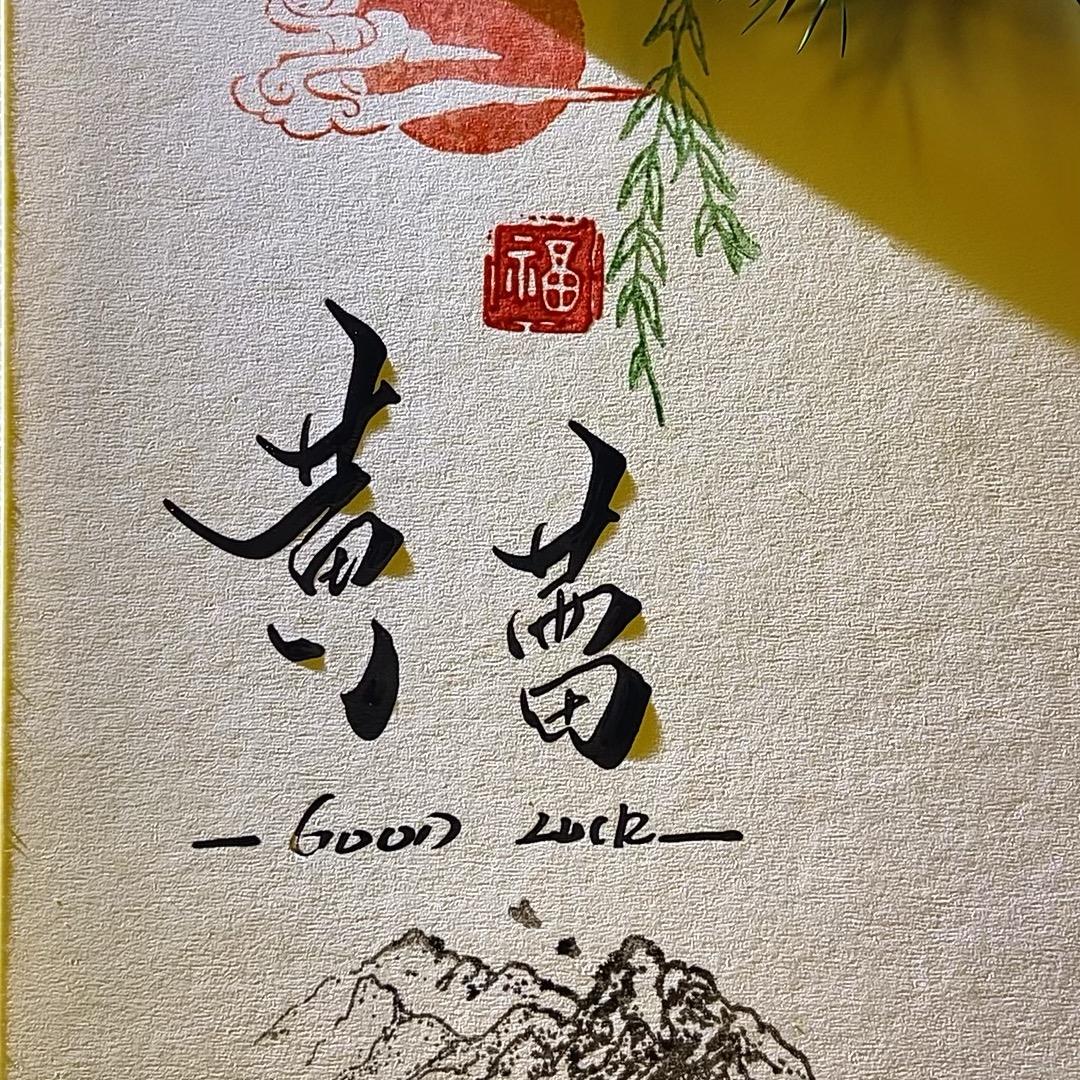 福
黄蕾
— GOOD LUCK —